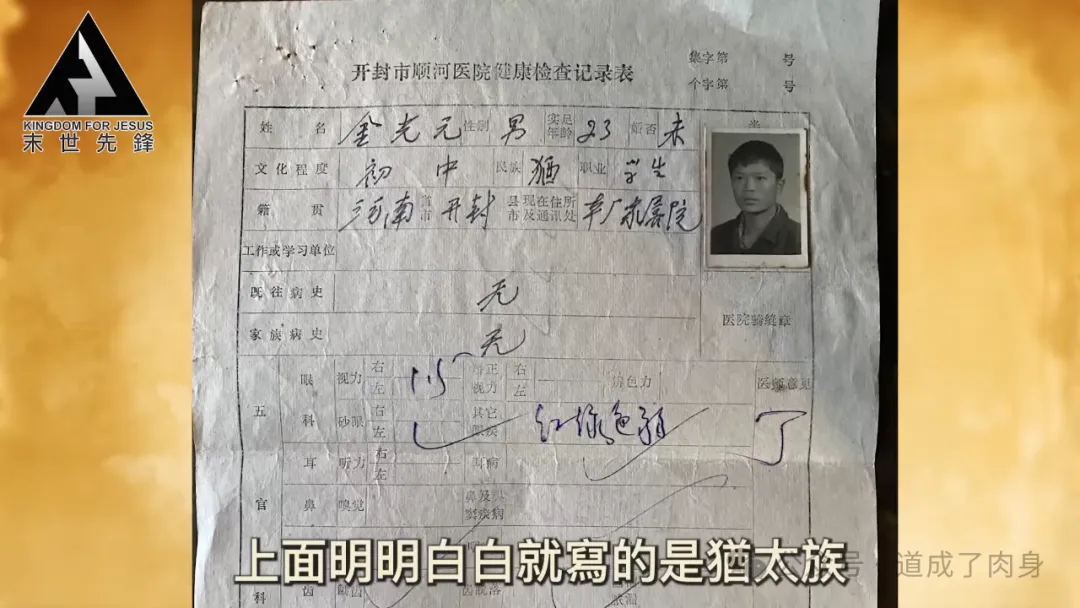 KINGDOM FOR JESUS
末世先鋒
开封市顺河医院健康检查记录表
集字第 号
个字第 号
姓名 金光元 性别 男 实足年龄 23 婚否 未
文化程度 初中 民族 猶 职业 学生
籍贯 河南 省市 开封 县市 现在住所及通讯处
工作或学习单位
既往病史 无
家族病史 无
医院骑缝章
五官科
眼 视力 右 左 矫正视力 右 左 辨色力 医师意见
砂眼 右 左 其它眼疾 红绿色弱
耳 听力 右 左 耳病
鼻 嗅觉
上面明明白白就寫的是猶太族
道成了肉身